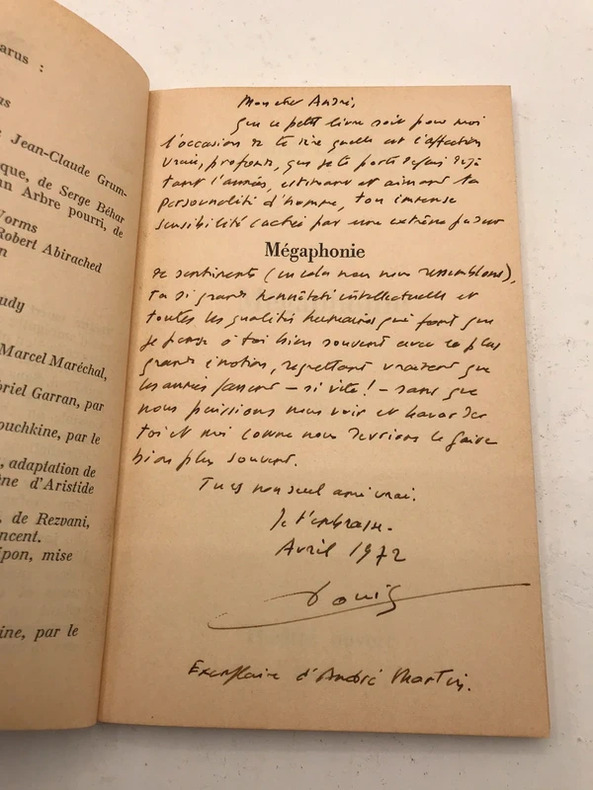 arus :
as
Jean-Claude Grum-
que, de Serge Béhar
n Arbre pourri, de
Worms
Robert Abirached
n
udy
Marcel Maréchal,
briel Garran, par
ouchkine, par le
, adaptation de
ène d'Aristide
, de Rezvani,
ncent.
ipon, mise
ine, par le
Mon cher André,
Que ce petit livre soit pour moi
l'occasion de te dire quelle est l'affection
vraie, profonde, que je te porte depuis déjà
tant d'années, estimant et aimant ta
personnalité d'homme, ton immense
sensibilité cachée par une extrême pudeur
Mégaphonie
de sentiments (en cela nous nous ressemblons),
ta si grande honnêteté intellectuelle et
toutes les qualités humaines qui font que
je pense à toi bien souvent avec la plus
grande émotion, regrettant vraiment que
les années passent – si vite ! – sans que
nous puissions nous voir et bavarder
toi et moi comme nous devrions le faire
bien plus souvent.
Tu es mon seul ami vrai.
Je t'embrasse.
Avril 1972
Louis
Exemplaire d'André Martin.